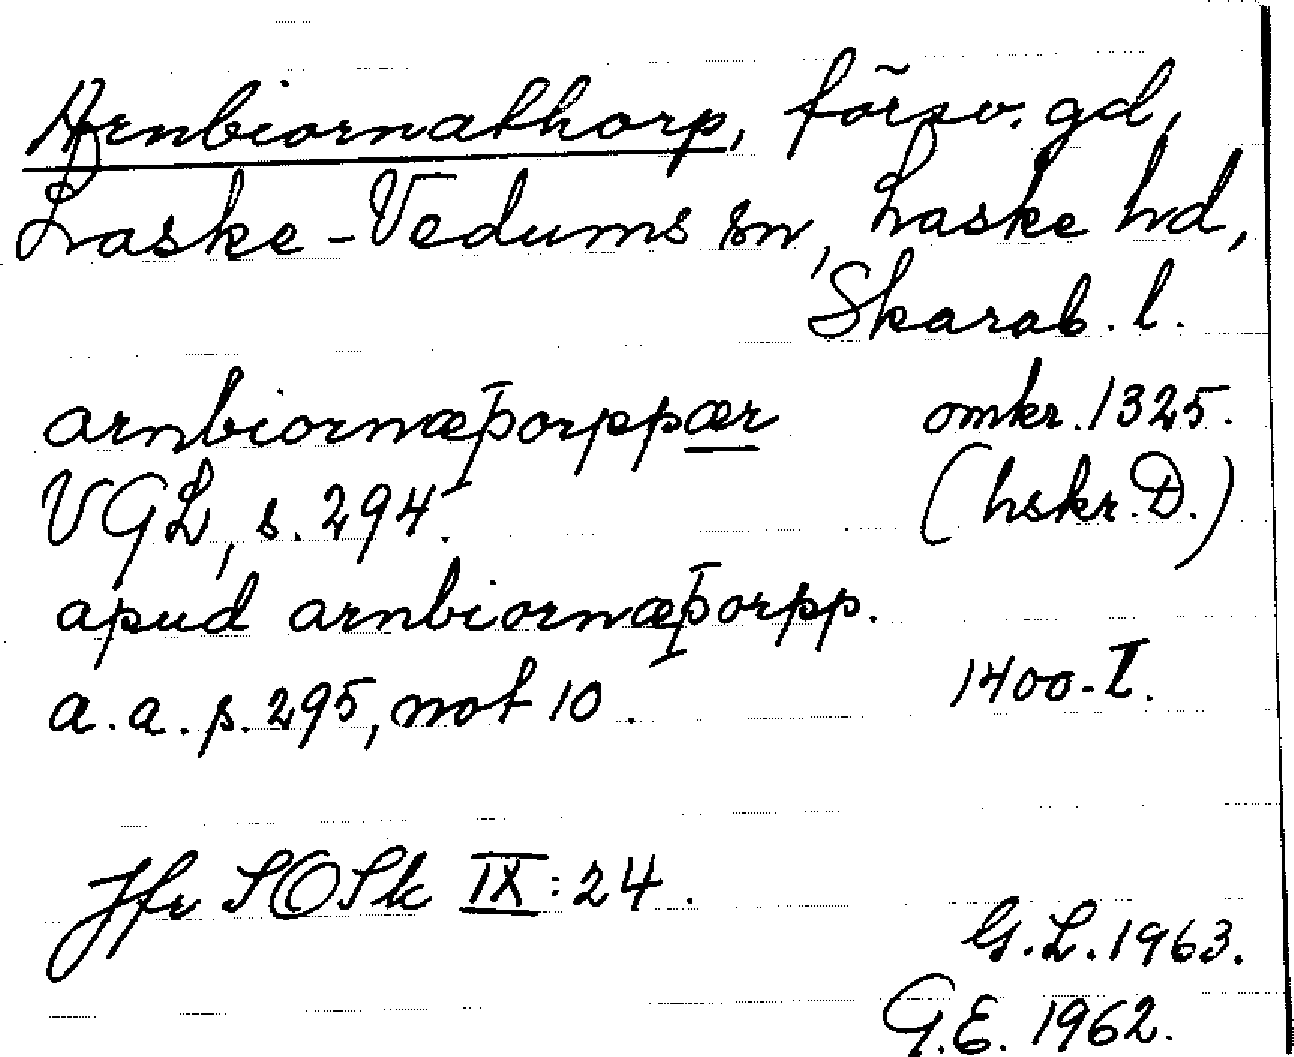 Arnbiornathorp, försv. gd,
Laske-Vedums sn, Laske hd,
Skarab. l.
arnbiornæþorppær omkr. 1325.
VGL, s. 294. (hskr. D.)
apud arnbiornæþorpp.
a. a. s. 295, not 10. 1400-T.
Jfr SOSk IX: 24.
G. L. 1963.
G. E. 1962.